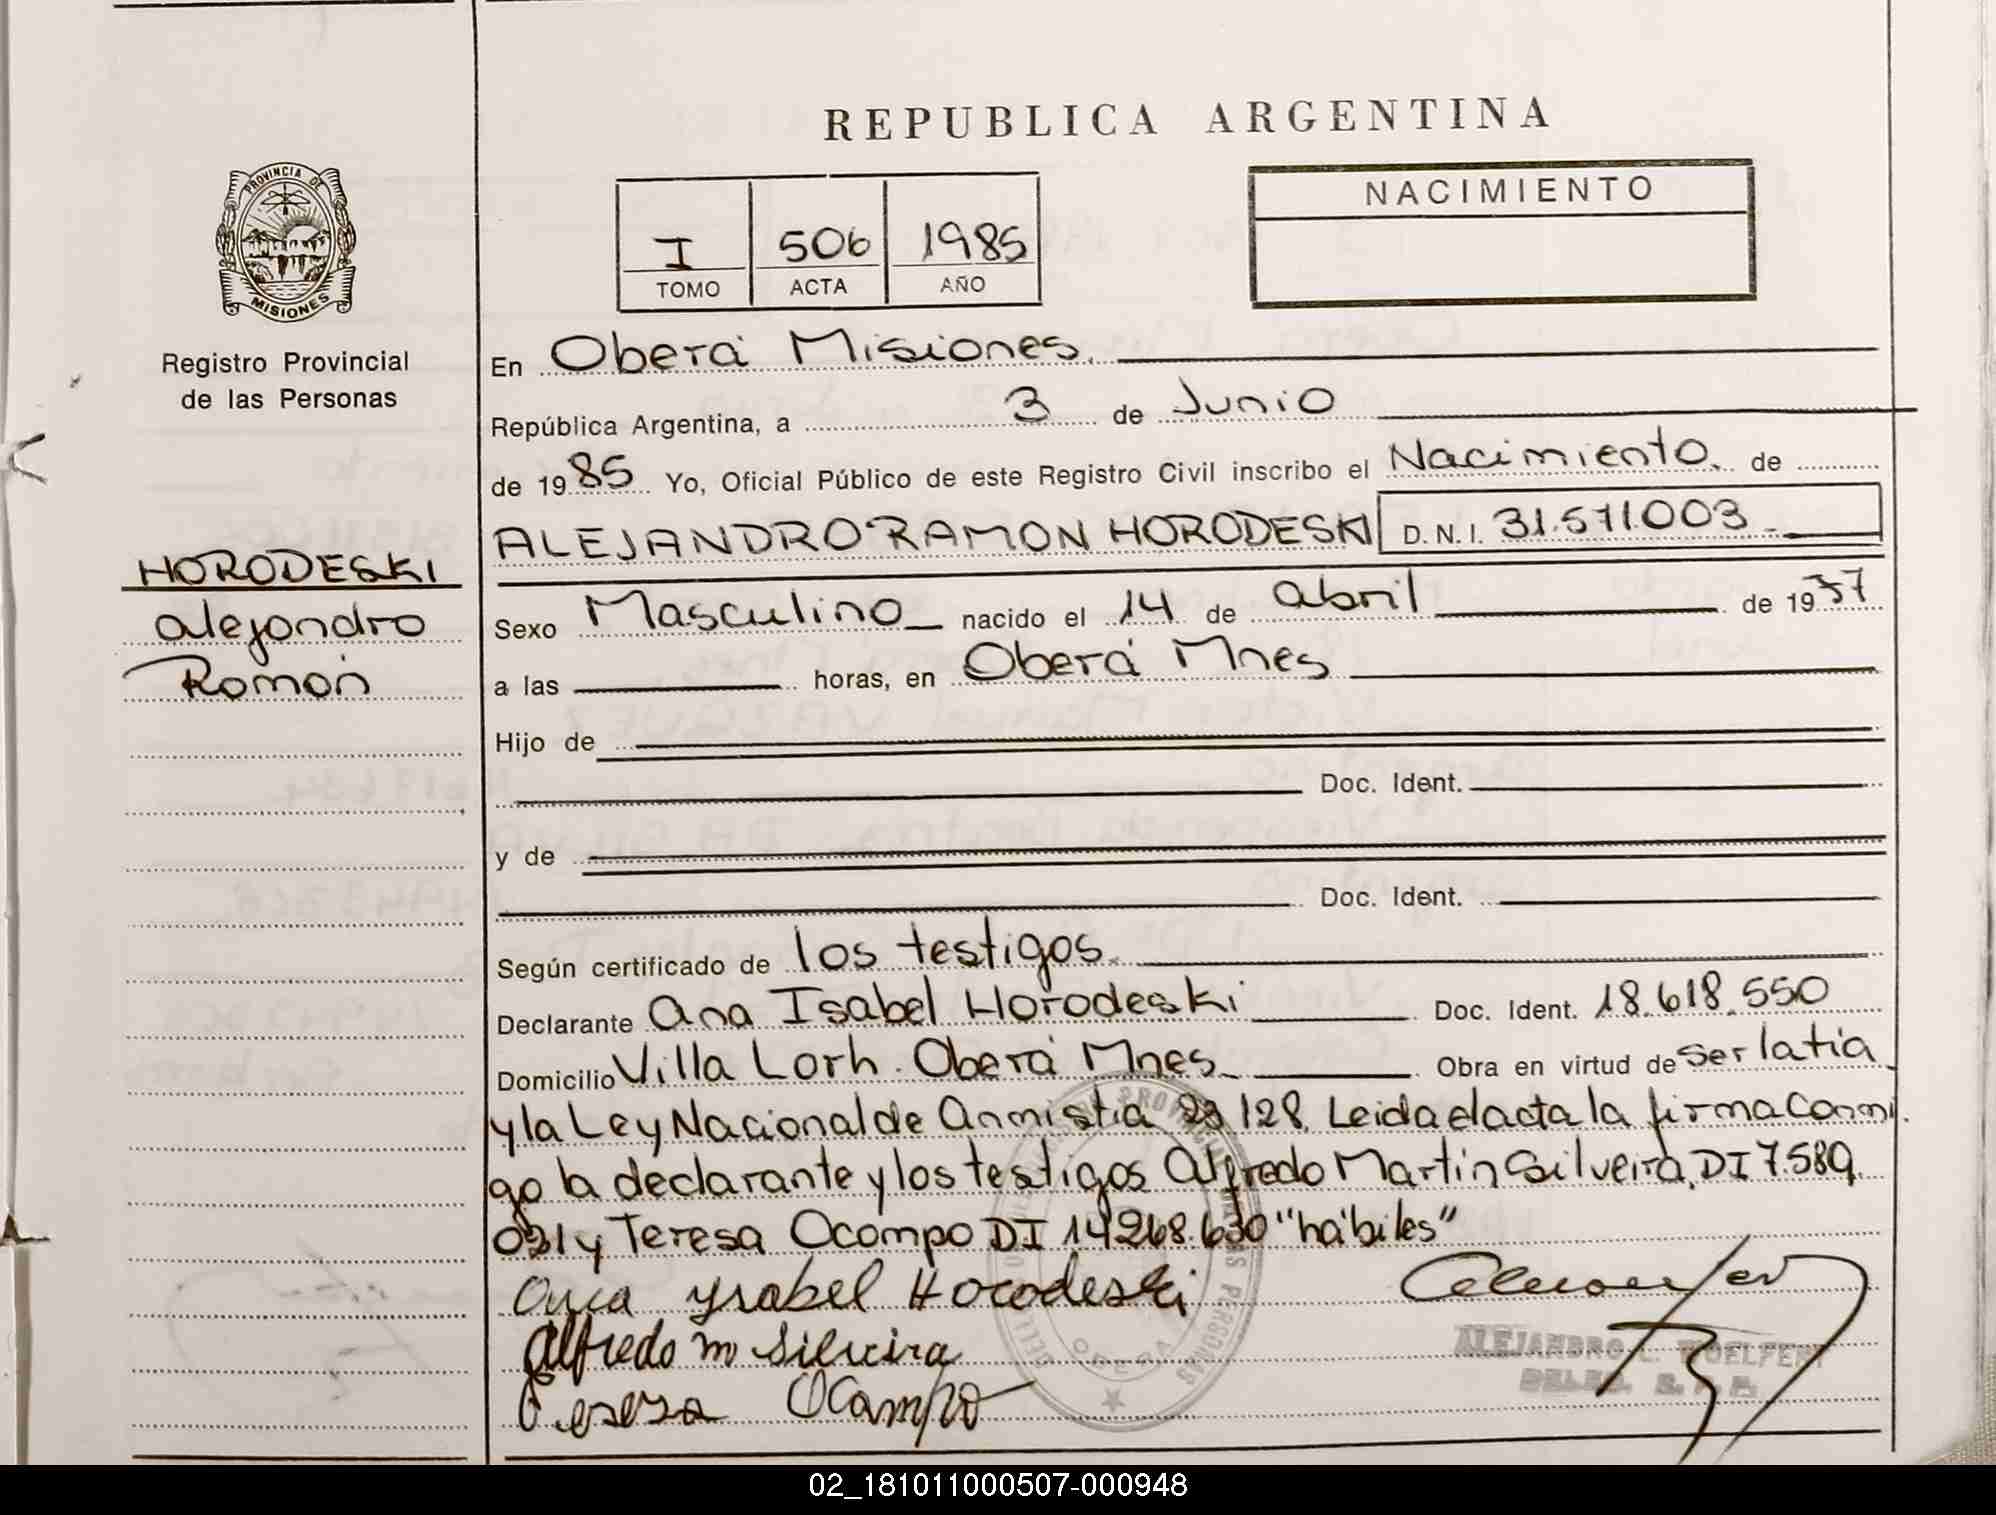 REPUBLICA ARGENTINA
PROVINCIA DE
MISIONES
Registro Provincial
de las Personas
I 506 1985
TOMO ACTA AÑO
NACIMIENTO
En Oberá Misiones.
República Argentina, a 3 de Junio
de 1985 Yo, Oficial Público de este Registro Civil inscribo el Nacimiento. de
ALEJANDRO RAMON HORODESKI D.N.I. 31.571.003
HORODESKI
Alejandro
Ramón
Sexo Masculino nacido el 14 de Abril de 1937
a las horas, en Oberá Mnes
Hijo de
Doc. Ident.
y de
Doc. Ident.
Según certificado de los testigos.
Declarante Ana Isabel Horodeski Doc. Ident. 18.618.550
Domicilio Villa Lorh. Oberá Mnes. Obra en virtud de ser la tia
y la Ley Nacional de Anmistia 23 128. Leida el acta la firma Conmi
go la declarante y los testigos Alfredo Martin Silveira, DI 7.589.
031 y Teresa Ocampo DI 14268.630 "hábiles"
Ana Ysabel Horodeski
Alfredo M Silveira
Teresa Ocampo
ALEJANDRO L. WOELFERT
DELEG. R. P. P.
OBERA
02_181011000507-000948